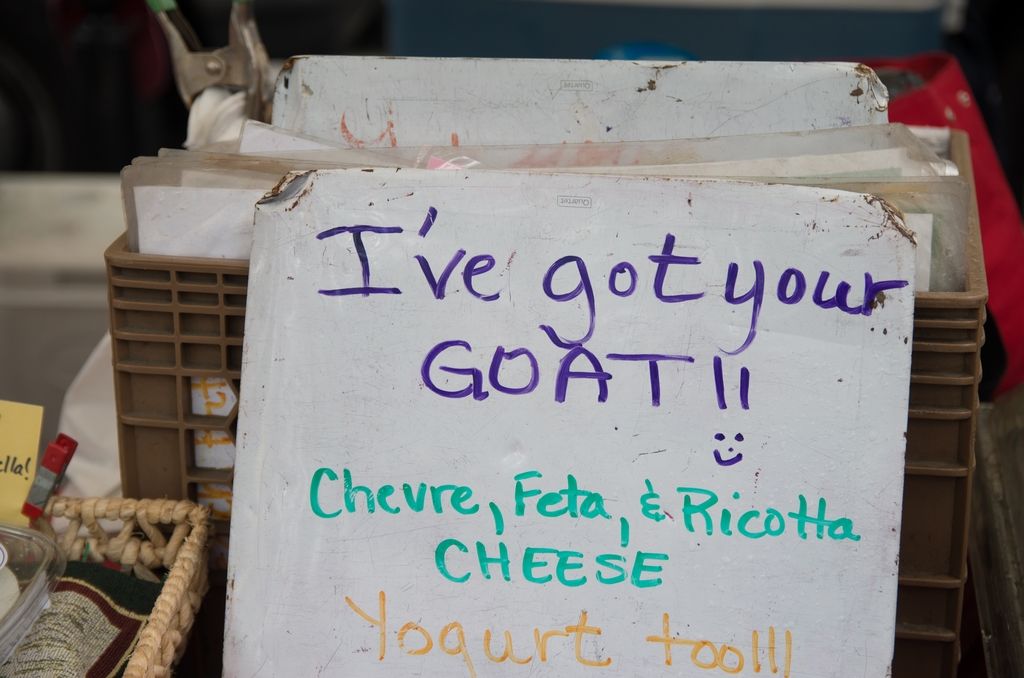 Quartet
Quartet
I've got your
GOAT!!
Chevre, Feta, & Ricotta
CHEESE
Yogurt too!!!
ella!